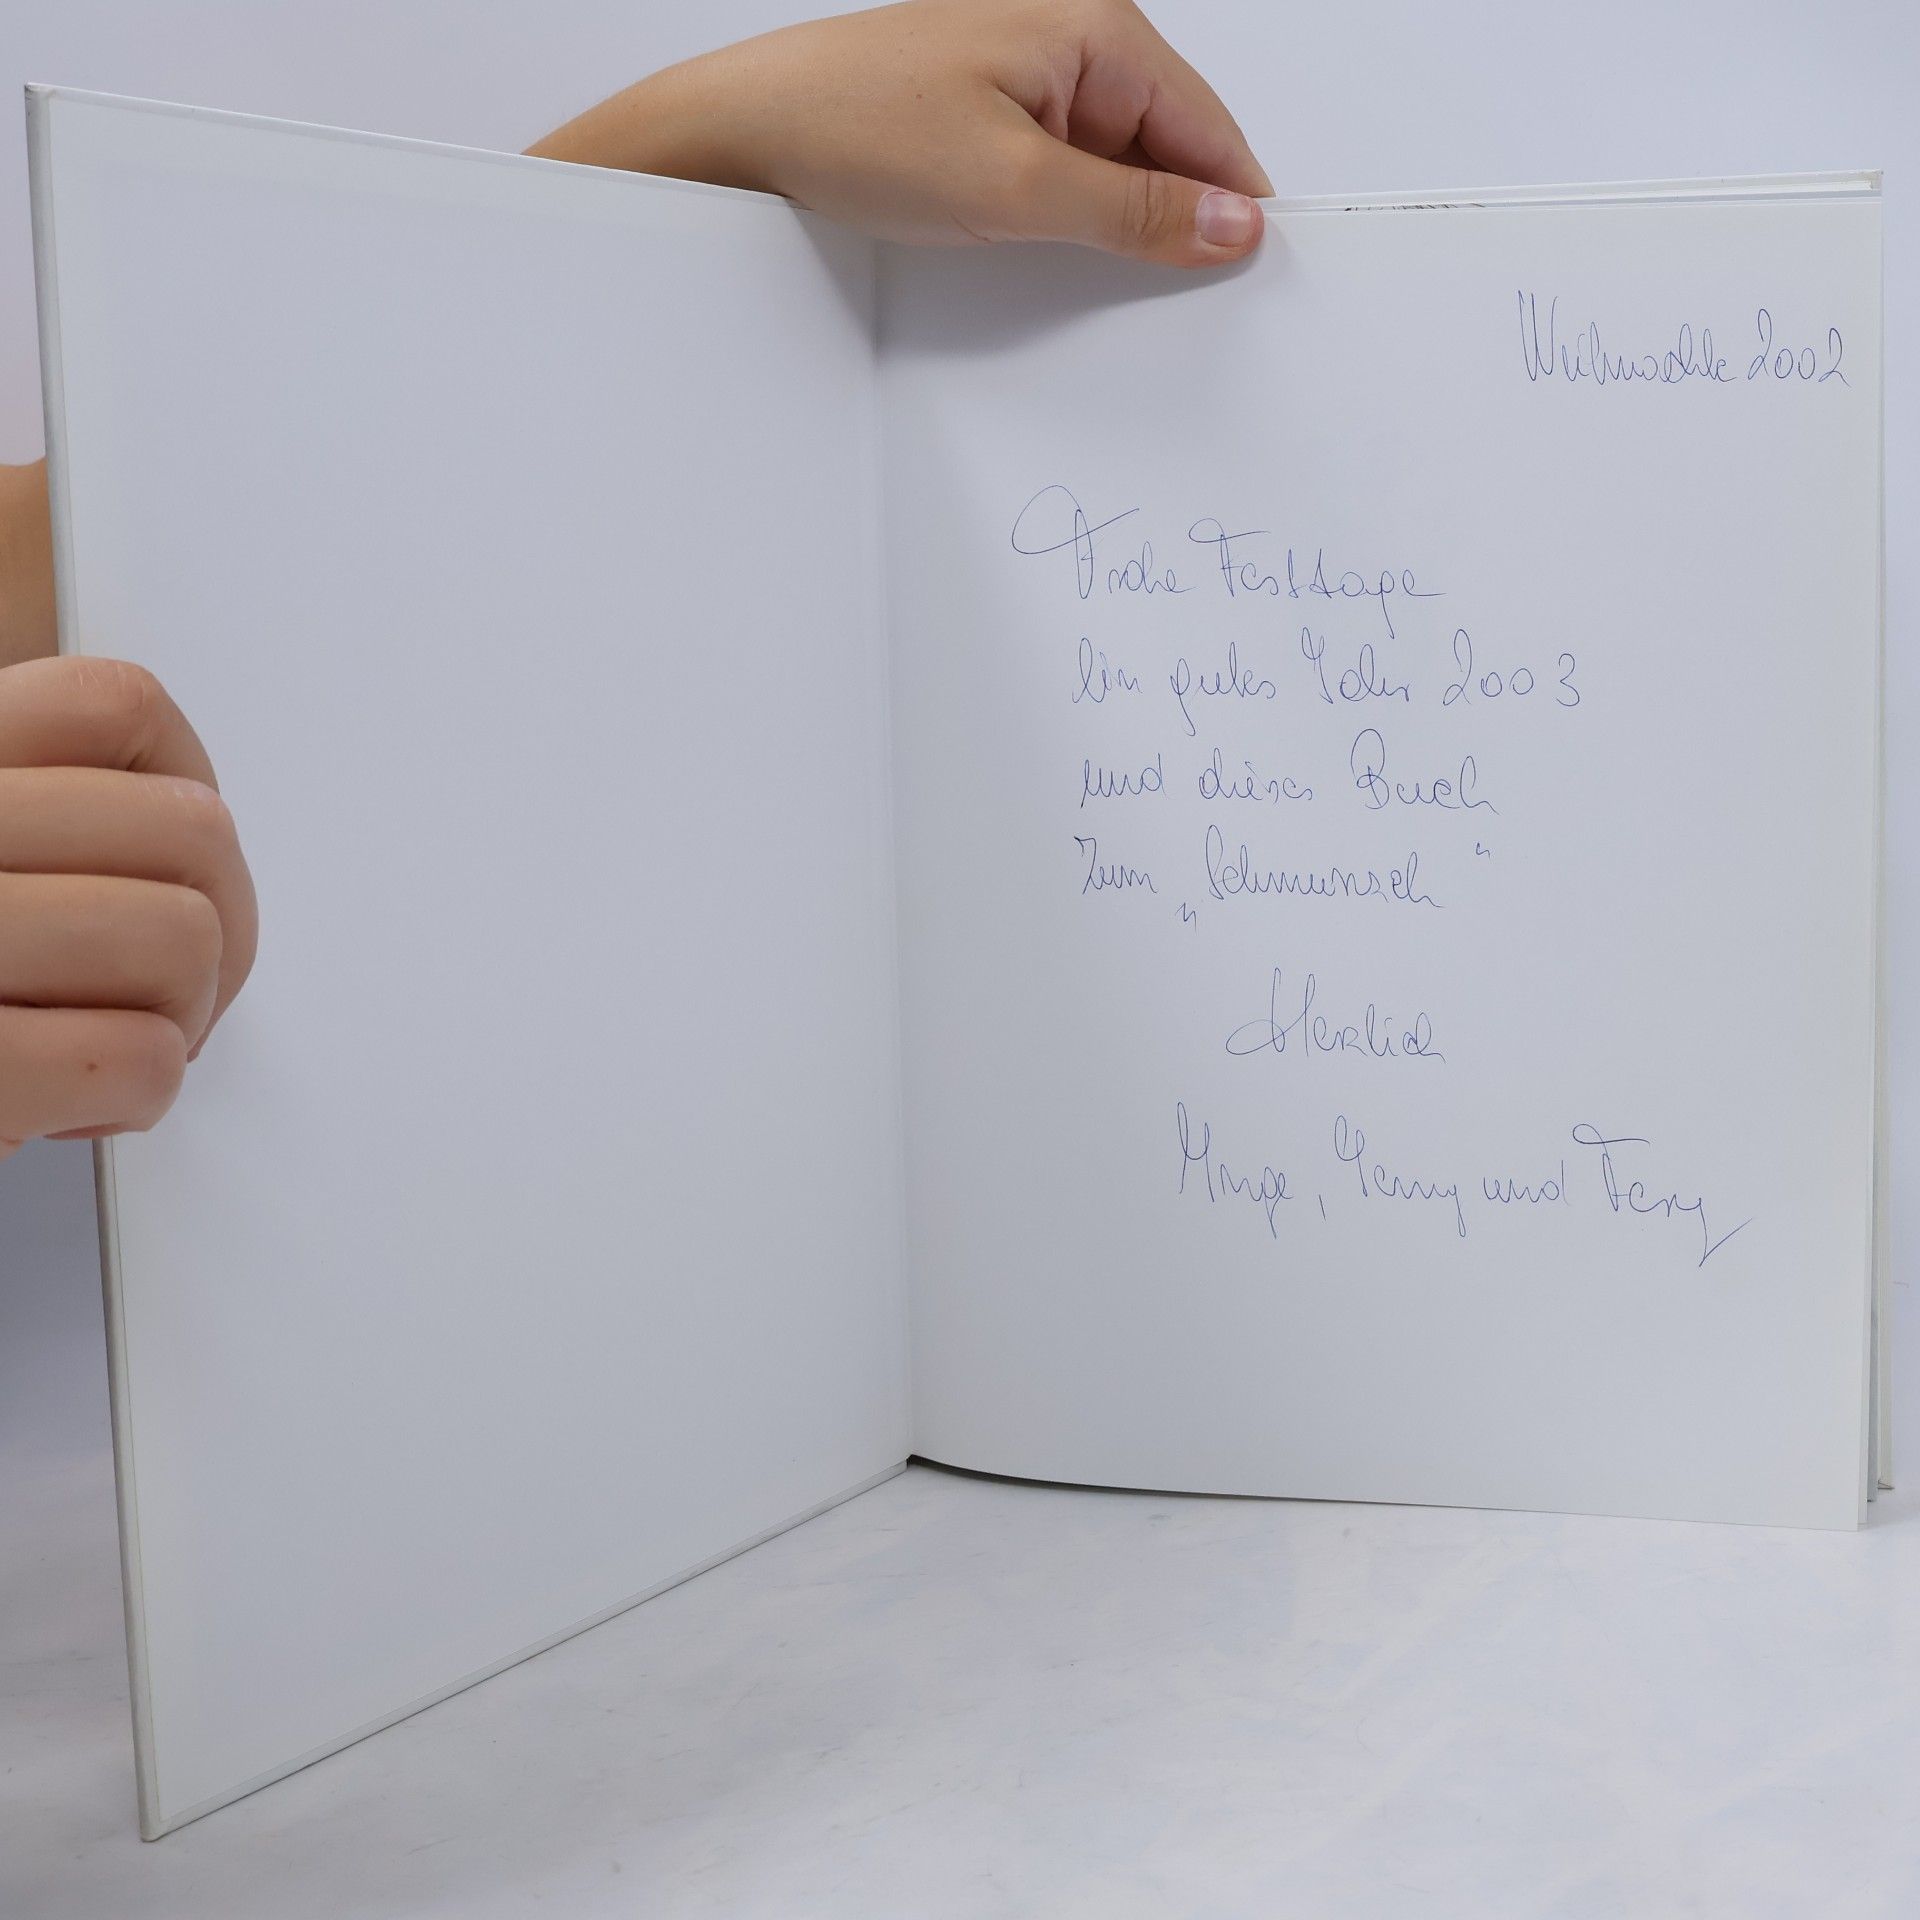 Weihnachten 2002
Frohe Festtage
Ein gutes Jahr 2003
und dieses Buch
zum „Schmunzeln“
Herzlich
Inge, Jenny und Ferry